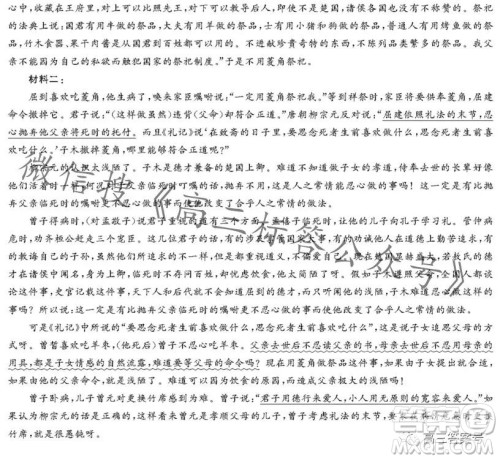 心中,收藏在王府里,对上可以比照先王,对下可以教导后人,即使不是楚国,诸侯各国也没有不称赞的。祭祀
的法典上说:国君有用牛做的祭品,大夫有用羊做的祭品,士有用小猪和狗做的祭品,普通人有用烤鱼做的祭
品,竹木食器、果子肉酱是从国君到百姓都可以用的。不进献珍贵奇特的东西,不陈列品类繁多的祭品。我父
亲不能因为自己的私欲而触犯国家的祭祀制度。”于是不用菱角祭祀。
材料二:
屈到喜欢吃菱角,他生病了,唤来家臣嘱咐说:“一定用菱角祭祀我。”等到祥祭时,家臣将要供奉菱角,屈建
命令撤掉它。君子说:“(这样做虽然)违背(父命)却符合正道。”唐朝柳宗元反对说:“屈建依照礼法的末节,忍
心抛弃他父亲将死时的托付。而且《礼记》说‘在斋的日子里,要思念死者生前喜欢做什么,思念死者生前喜
欢吃什么。’子木撤掉菱角,哪里能够符合正道呢?”
柳宗元的认识太浅陋了。子木是楚国上卿,难道不知道做子女的孝道,侍奉
他们活着时一样,何况对于父亲临死时叮嘱的话,抛弃不用,这是人之常情能忍心做的事吗!这一定是有比抛
弃父亲临死时的嘱咐更不忍心做的事而使他改变了合乎人之常情的做法。
曾子得病时,(对孟敬子)说君子重视的道有三个方面;孟僖子临死时,让他的儿子向孔子学习礼。管仲病
危时,功齐桓公赶走三个宦臣。这几位君子的话,有的涉及国家大事,有的
的教诲自己的子孙,虽然他们所追求的不一样,但是都重视道义,不偏爱自己
才在诸侯中闻名,身为上卿,临死时不担忧国家,却忧虑饮食,他太简陋了呀。假如子木遵照父命,全国人都谈
论这件事,史官记载这件事,天下人和后代就不会知道屈到的德才,而只听说他的陋闻,子木难道忍心做这样的
事吗!所以说:这一定是有比抛弃父亲临死时的嘱咐更不忍心做的事而使他改变了合乎人之常情的做法。
可是《礼记》中所说的“要思念死者生前喜欢做什么,思念死者生前喜欢吃什么”,这是说子女追思父母的方
式呀。曾皙喜欢吃羊枣,(他死后)曾子不忍心吃羊枣。父亲去世后不忍读父亲的书,母亲去世后不忍用母亲的
用具,都是子女情感的自然流露,难道要等父母的命令吗?现在用菱角做祭品这件事,如果由子女提出就合适,
如果由他的父亲命令,就是浅陋了。难道可以因为饮食的原因,而造成父亲极大的浅陋吗!
曾子卧病,儿子曾元对更换竹席感到为难。曾子说:“君子用德行来爱人,小人用无原则的宽容来爱人。”如
果认为柳宗元的话是正确的,这样看来曾元是孝顺父母的,曾子考虑礼法的末节,
竹席,就是很愚钝呀。
微信搜《高三标答公众号》
高三答案号